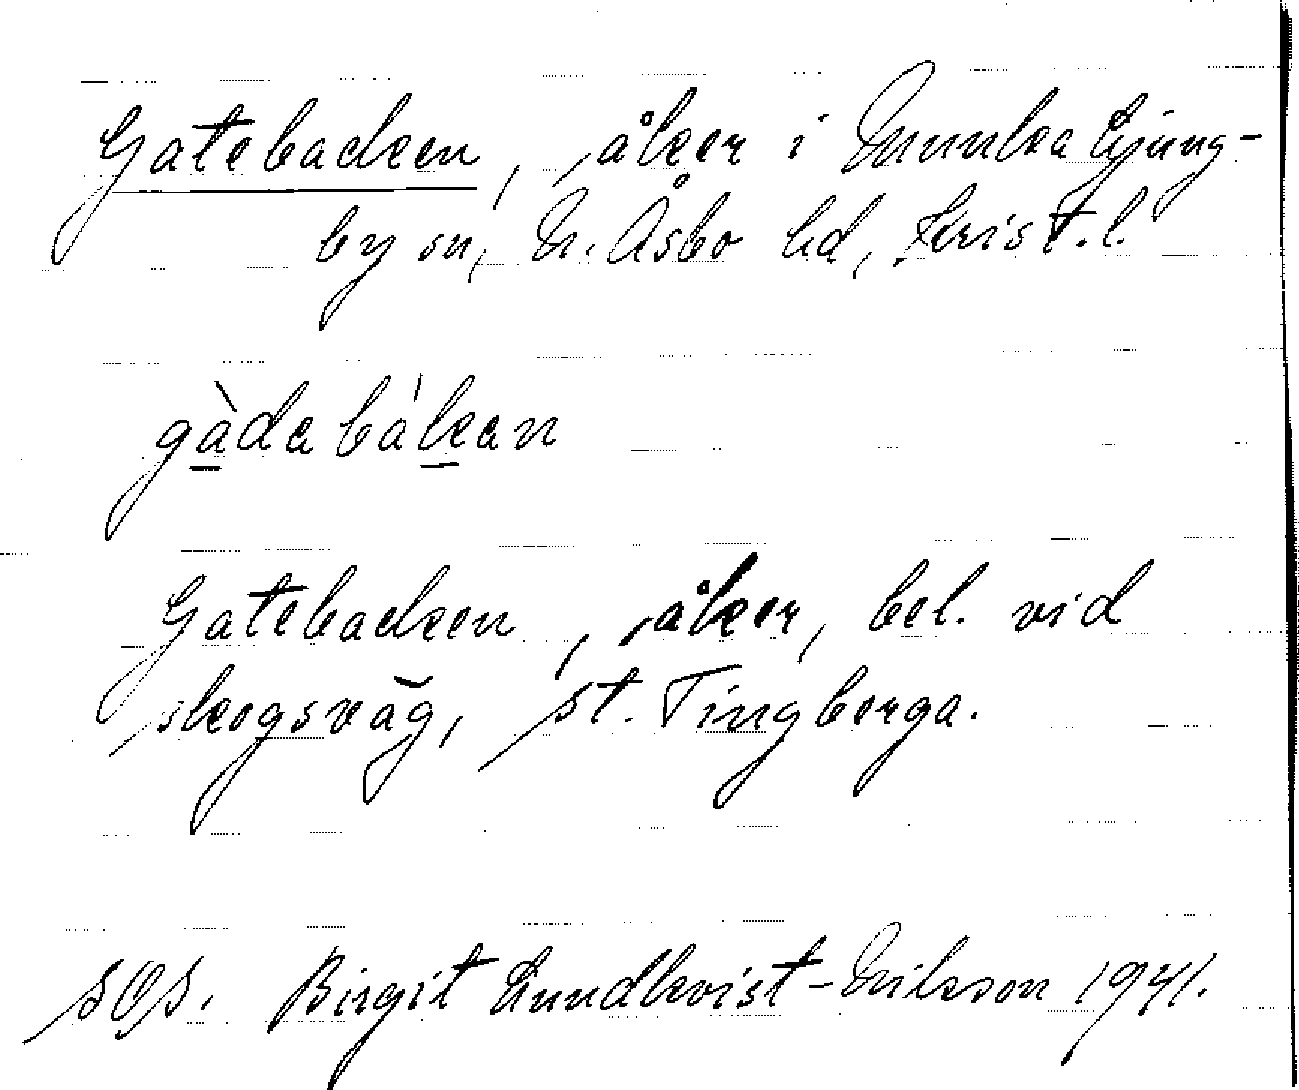 Gatebacken, åker i Munka Ljung-
by sn, N. Åsbo hd, Krist. l.
gàdabákan
Gatebacken, åker, bel. vid
skogsväg, St. Tingberga.
SOS. Birgit Lundkvist-Nilsson 1941.